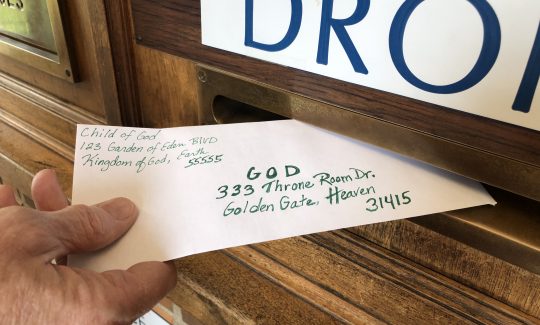 DRO
Child of God
123 Garden of Eden BLVD
Kingdom of God, Earth
55555
GOD
333 Throne Room Dr.
Golden Gate, Heaven
31415